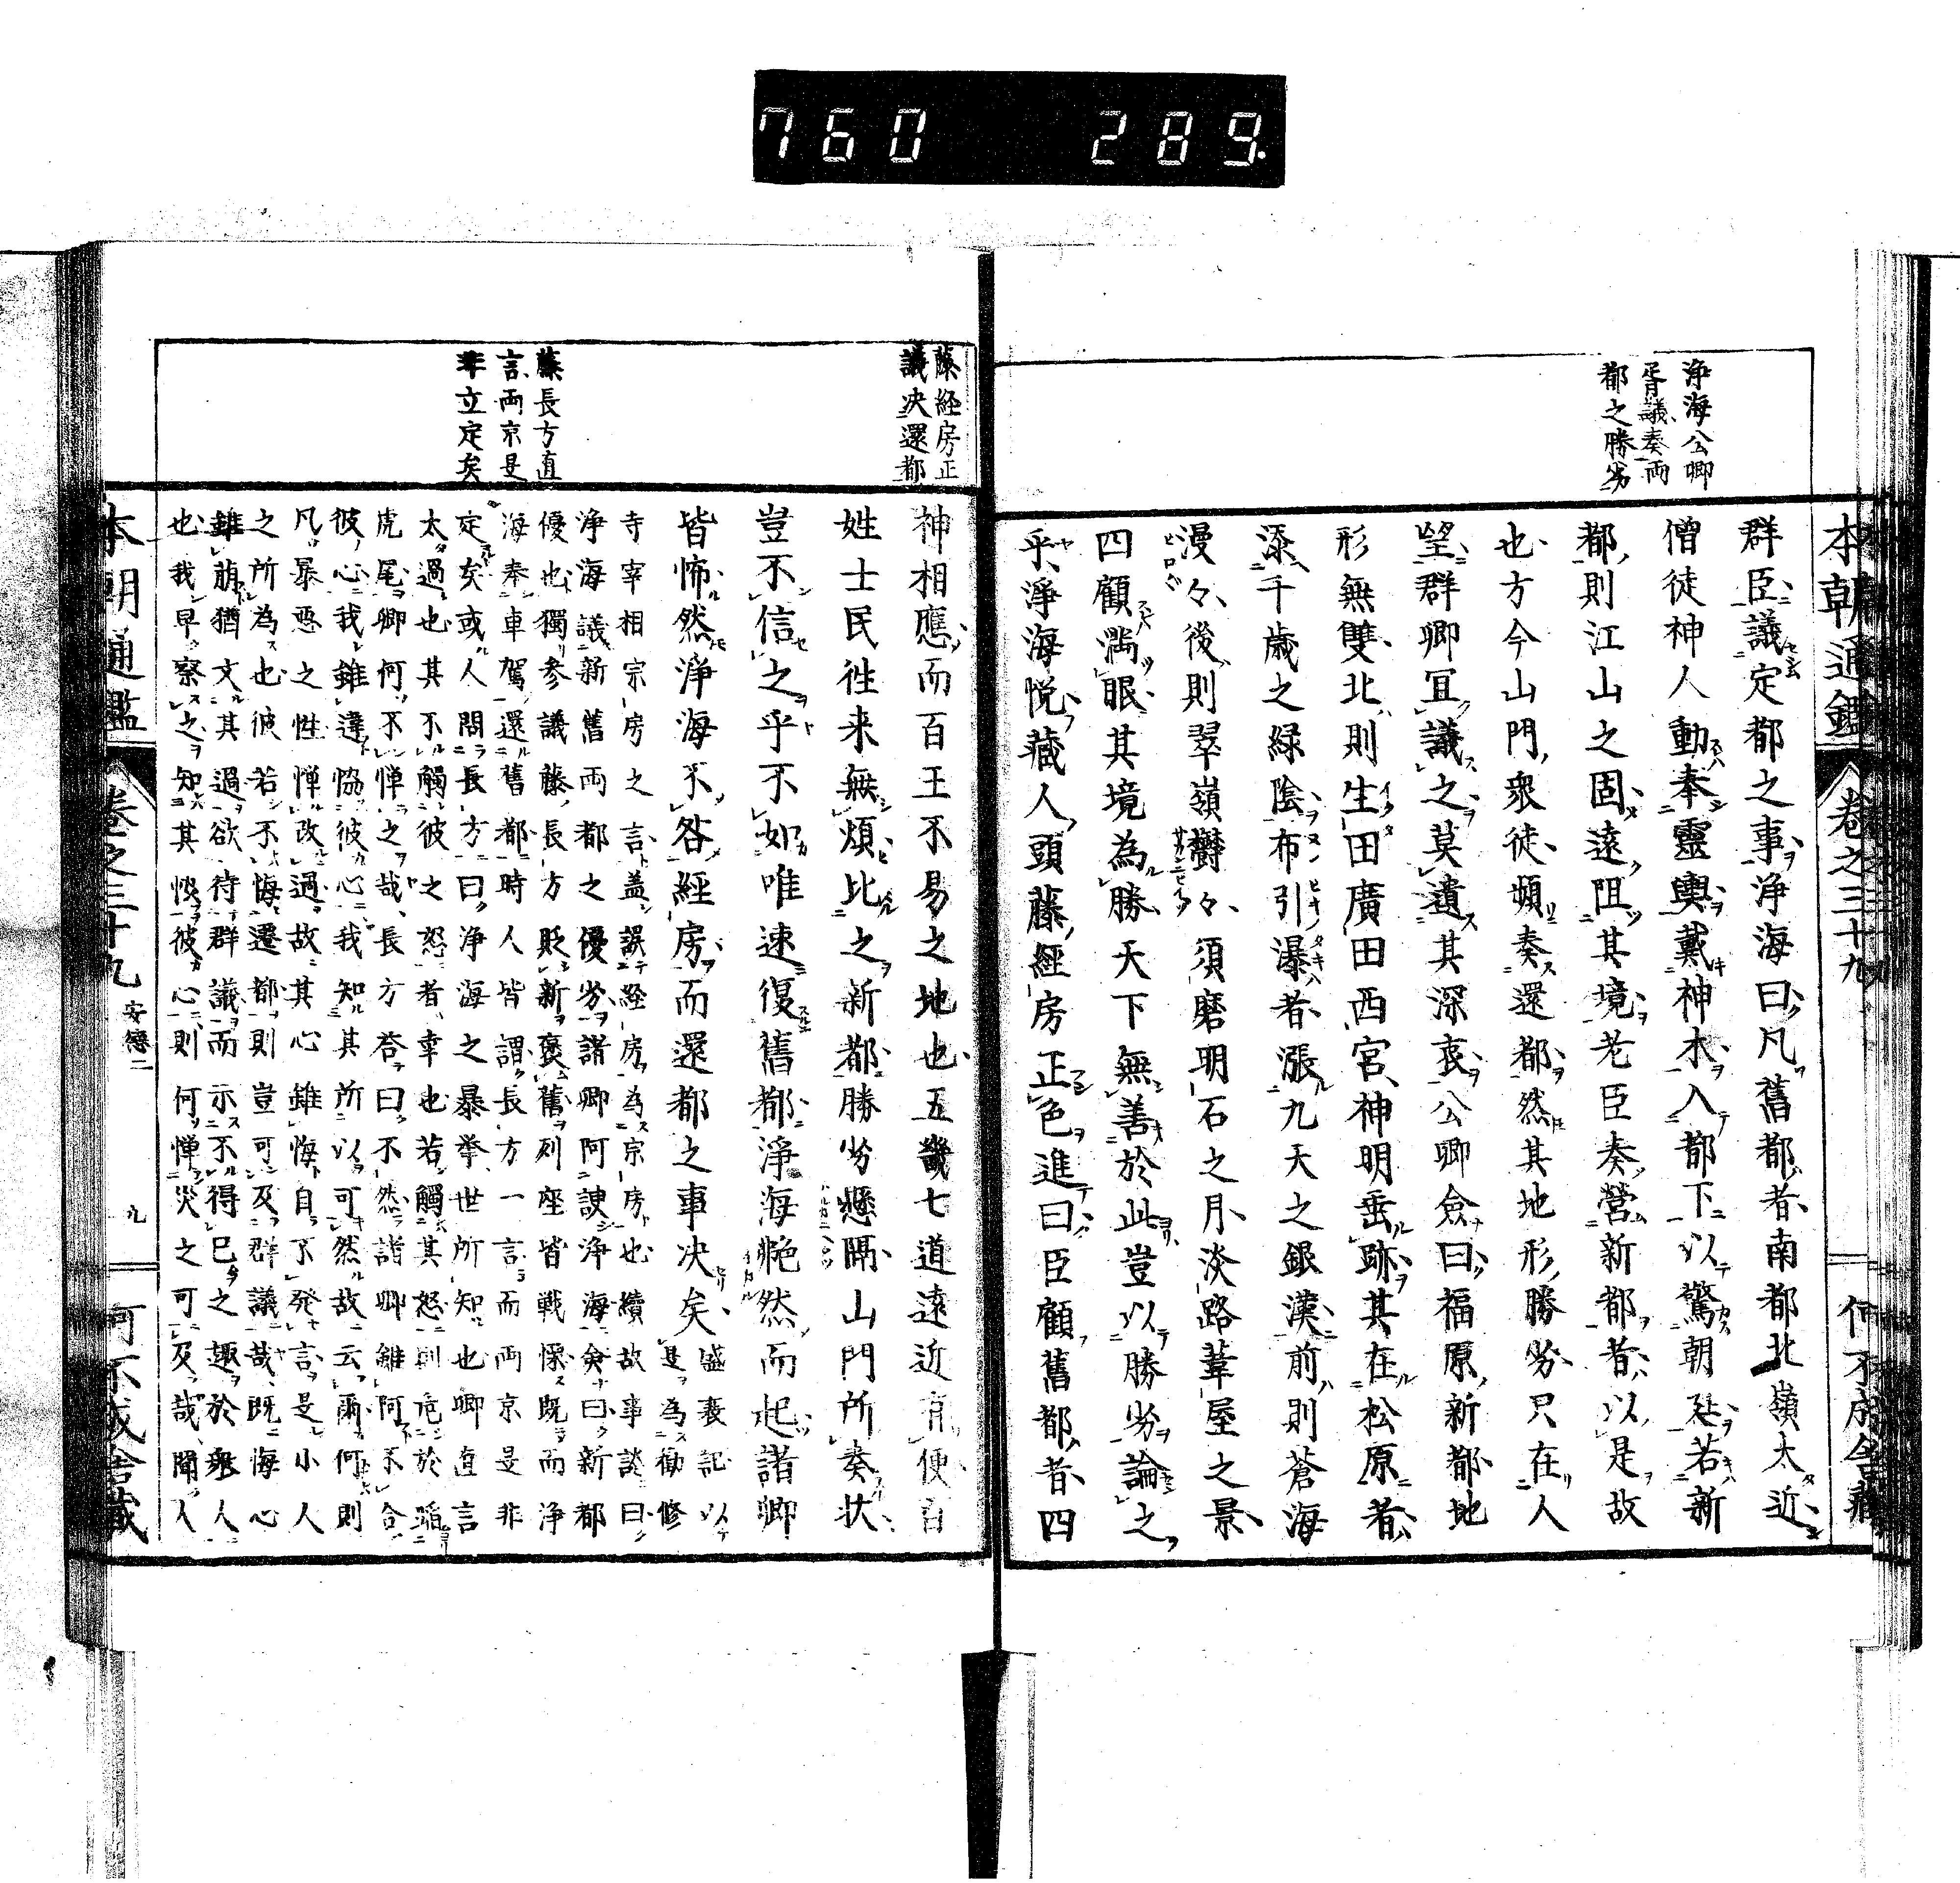 760 289.
本朝通鑑 卷之三十九
淨海公卿
胥議奏両
都之勝劣
群臣議定都之事淨海曰凡舊都者南都北嶺太近
僧徒神人動奉靈輿戴神木入都下以驚朝廷若新
都則江山之固遠阻其境老臣奏營新都者以是故
也方今山門衆徒頻奏還都然其地形勝劣只在人
望群卿冝議之莫遺其深衷公卿僉曰福原新都地
形無雙北則生田廣田西宮神明垂跡其在松原者
添千歳之緑陰布引瀑者漲九天之銀漢前則蒼海
漫々後則翠嶺欝々須磨明石之月淡路葦屋之景
四顧満眼其境為勝天下無善於此豈以勝劣論之
乎淨海悦藏人頭藤經房正色進曰臣顧舊都者四
藤経房正
議决還都
藤長方直
言両京是
非立定矣
神相應而百王不易之地也五畿七道遠近有便百
姓士民徃来無煩比之新都勝劣懸隔山門所奏状
豈不信之乎不如唯速復舊都淨海艴然而起諸卿
皆怖然淨海不咎經房而還都之事决矣
盛衰記以
是為勸修
寺宰相宗房之言盖誤経房為宗房也續故事談曰
淨海議新舊両都之優劣諸卿阿諛淨海僉曰新都
優也獨参議藤長方貶新褒舊列座皆戦慄既而淨
海奉車駕還舊都時人皆謂長方一言而両京是非
定矣或人問長方曰淨海之暴挙世所知也卿直言
太過也其不觸彼之怒者幸也若觸其怒則危於蹈
虎尾卿何不憚之哉長方答曰不然諸卿雖阿不合
彼心我雖違恊彼心我知其所以可然故云爾何則
凡暴悪之性憚改過故其心雖悔自不発言是小人
之所為也彼若不悔遷都則豈可及群議哉既海心
雖萌猶文其過欲待群議而示不得已之趣於衆人
也我早察之知其恢彼心則何憚災之可及哉聞人
本朝通鑑 卷之三十九 安德二 九